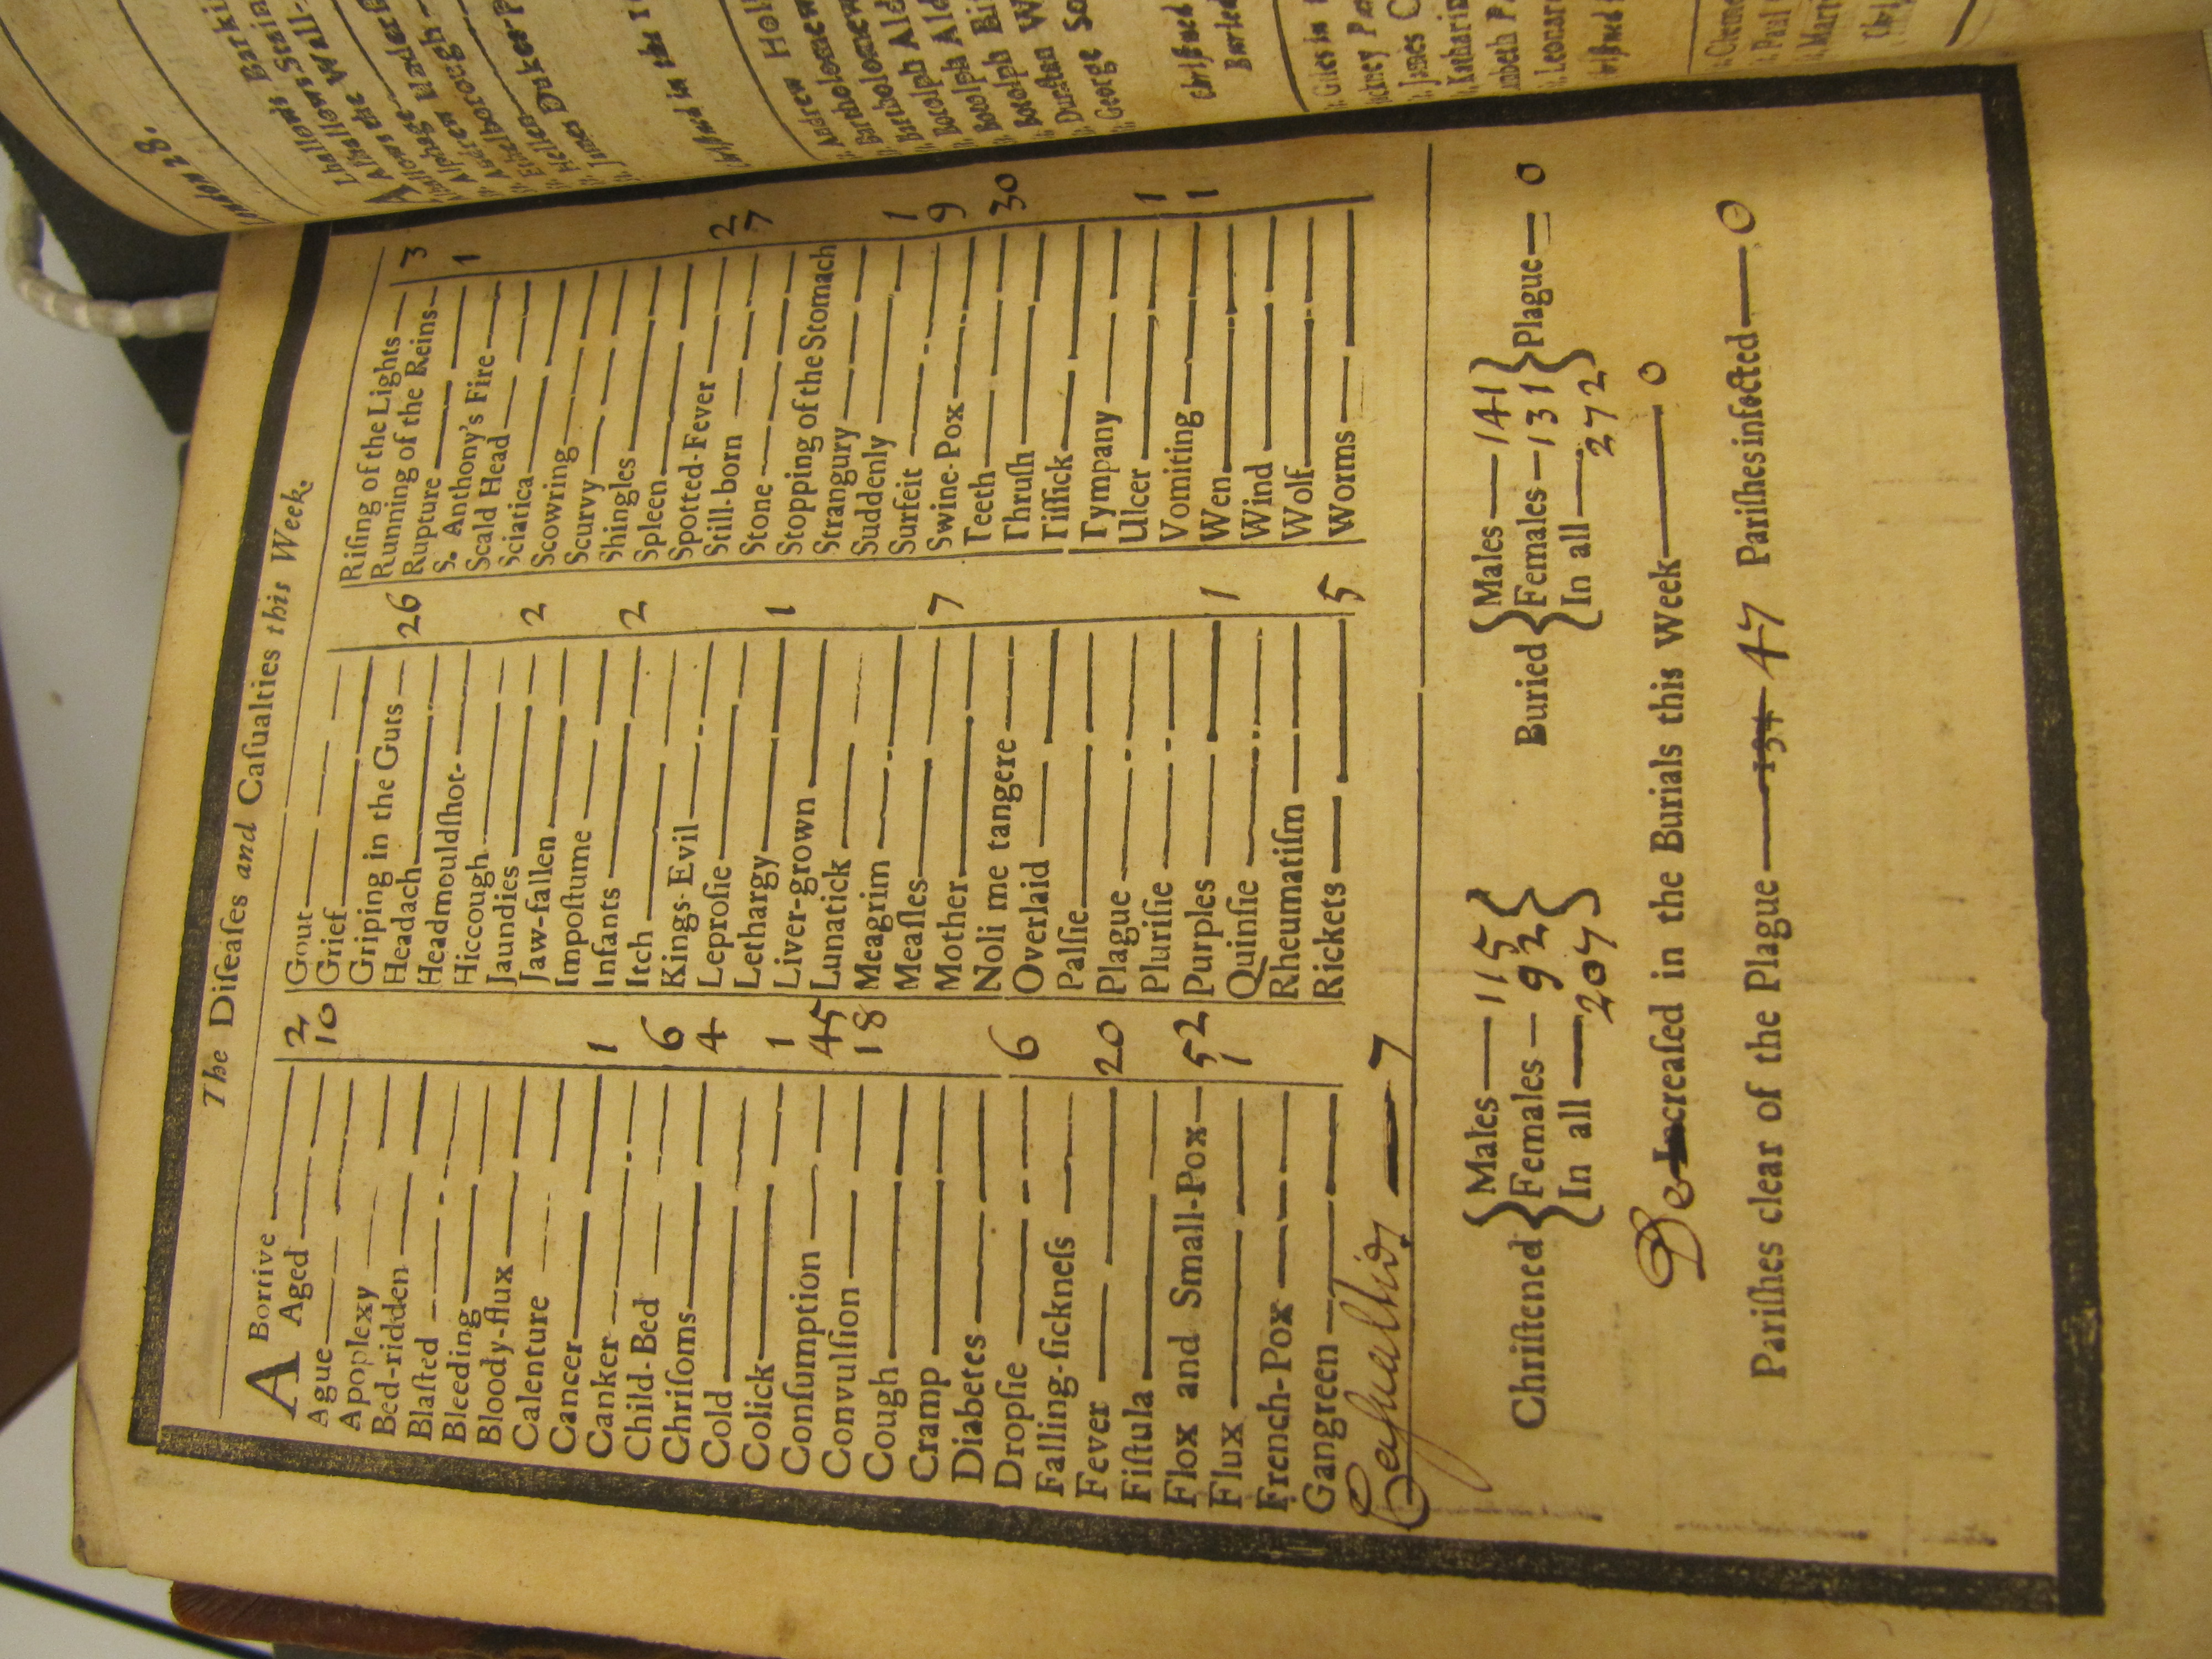 The Diseaſes and Caſualties this Week.
ABortive 2
Aged 10
Ague
Apoplexy
Bed-ridden
Blaſted
Bleeding
Bloody-flux
Calenture
Cancer 1
Canker
Child-Bed 6
Chriſoms 4
Cold
Colick 1
Conſumption 45
Convulſion 18
Cough
Cramp
Diabetes
Dropſie 6
Falling-ſickneſs
Fever 20
Fiſtula
Flox and Small-Pox 52
Flux 1
French-Pox
Gangreen
Caſualtids 7
Gout
Grief
Griping in the Guts 26
Headach
Headmouldſhot
Hiccough
Jaundies 2
Jaw-fallen
Impoſtume
Infants 2
Itch
Kings-Evil
Leproſie
Lethargy 1
Liver-grown
Lunatick
Meagrim
Meaſles 7
Mother
Noli me tangere
Overlaid
Palſie
Plague
Pluriſie
Purples 1
Quinſie
Rheumatiſm
Rickets 5
Riſing of the Lights 3
Running of the Reins
Rupture 1
S. Anthony's Fire
Scald Head
Sciatica
Scowring
Scurvy
Shingles
Spleen
Spotted-Fever 2
Still-born 7
Stone
Stopping of the Stomach
Strangury
Suddenly 1
Surfeit 9
Swine-Pox
Teeth 30
Thruſh
Tiſſick
Tympany
Ulcer 1
Vomiting 1
Wen
Wind
Wolf
Worms
Chriſtened { Males 115 Females 92 In all 207 }
Buried { Males 141 Females 131 In all 272 } Plague 0
De Increaſed in the Burials this Week 0
Pariſhes clear of the Plague 134 47 Pariſhes infected 0